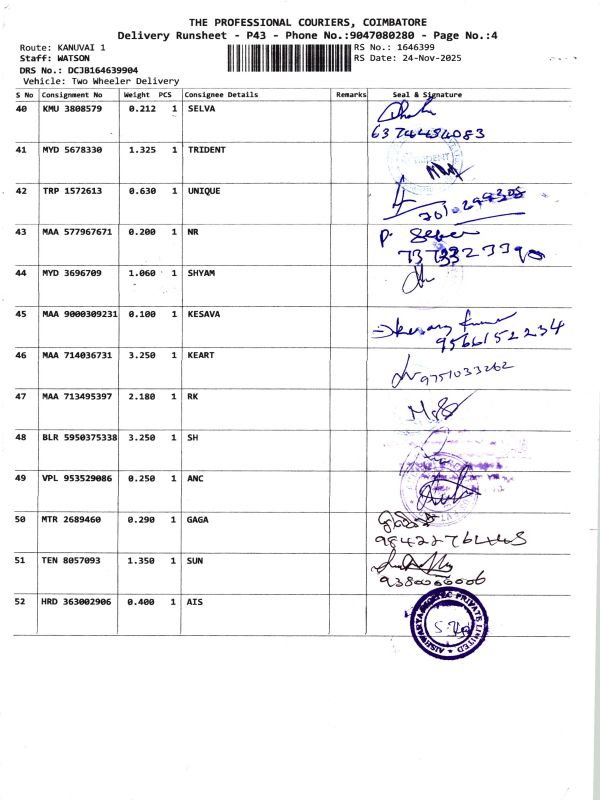 THE PROFESSIONAL COURIERS, COIMBATORE
Delivery Runsheet - P43 - Phone No.:9047080280 - Page No.:4
Route: KANUVAI 1
RS No.: 1646399
Staff: WATSON
RS Date: 24-Nov-2025
DRS No.: DCJB164639904
Vehicle: Two Wheeler Delivery
S No Consignment No Weight PCS Consignee Details Remarks Seal & Signature
40 KMU 3808579 0.212 1 SELVA
6374454083
41 MYD 5678330 1.325 1 TRIDENT
42 TRP 1572613 0.630 1 UNIQUE
43 MAA 577967671 0.200 1 NR
44 MYD 3696709 1.060 1 SHYAM
45 MAA 9000309231 0.100 1 KESAVA
9566152234
46 MAA 714036731 3.250 1 KEART
9751033262
47 MAA 713495397 2.180 1 RK
48 BLR 5950375338 3.250 1 SH
49 VPL 953529086 0.250 1 ANC
50 MTR 2689460 0.290 1 GAGA
51 TEN 8057093 1.350 1 SUN
9380066006
52 HRD 363002906 0.400 1 AIS
PRIVATE LIMITED